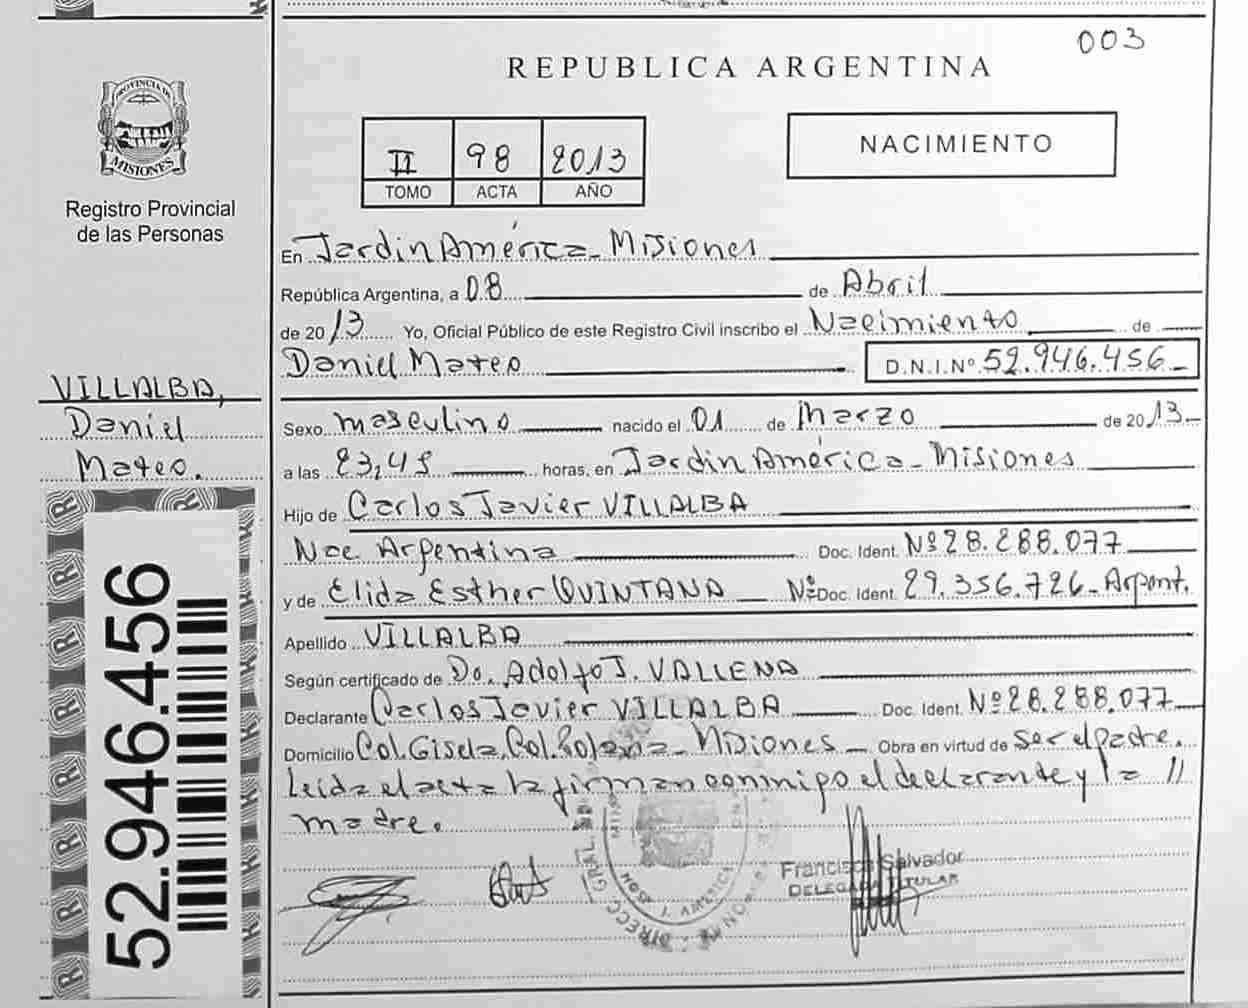 003
REPUBLICA ARGENTINA
PROVINCIA DE
MISIONES
Registro Provincial
de las Personas
II 98 2013
TOMO ACTA AÑO
NACIMIENTO
En Jardin América - Misiones
República Argentina, a 08 de Abril
de 2013 Yo, Oficial Público de este Registro Civil inscribo el Nacimiento de
Daniel Mateo D.N.I.Nº 52.946.456
VILLALBA,
Daniel
Mateo.
Sexo masculino nacido el 01 de Marzo de 2013
a las 23,45 horas, en Jardin América - Misiones
Hijo de Carlos Javier VILLALBA
Nac. Argentina Doc. Ident. Nº 28.288.077
y de Elida Esther QUINTANA Nº Doc. Ident. 29.356.726 - Argent.
Apellido VILLALBA
Según certificado de Do. Adolfo J. VALLENA
Declarante Carlos Javier VILLALBA Doc. Ident. Nº 28.288.077
Domicilio Col. Gisela, Gol. Misiones Obra en virtud de ser el padre.
Leída el acta la firman conmigo el declarante y la
madre.
52.946.456
Francisco Salvador
TITULAR
DIRECC. GRAL.
AMERICA